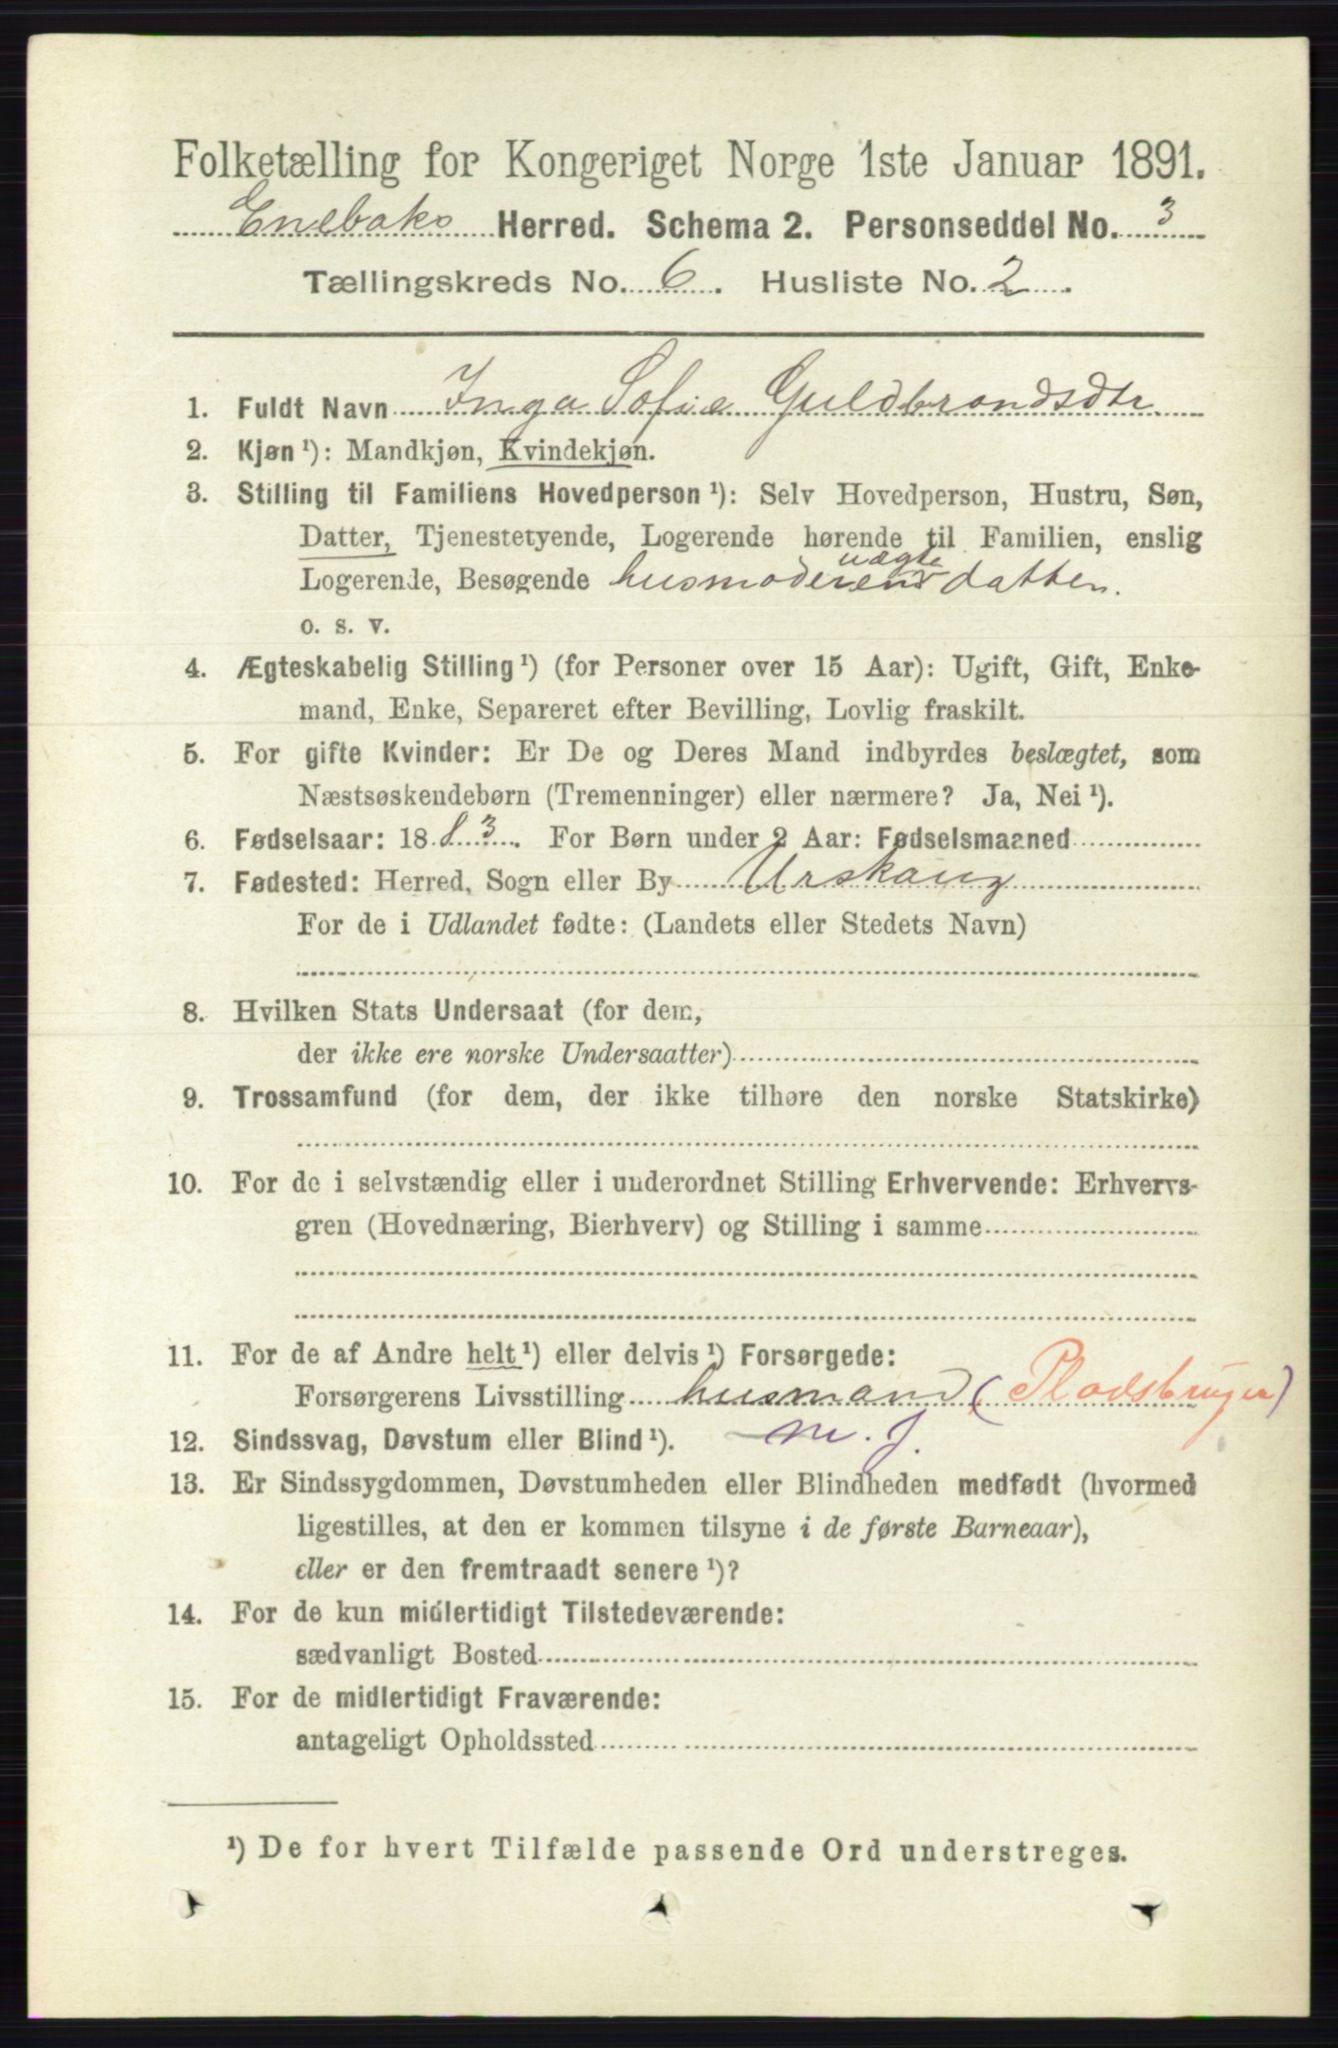 Folketælling for Kongeriget Norge 1ste Januar 1891.
Enebaks Herred. Schema 2. Personseddel No. 3
Tællingskreds No. 6. Husliste No. 2.
1. Fuldt Navn Inga Sofie Guldbrandsdtr
2. Kjøn ¹): Mandkjøn, Kvindekjøn.
3. Stilling til Familiens Hovedperson ¹): Selv Hovedperson, Hustru, Søn,
Datter, Tjenestetyende, Logerende hørende til Familien, enslig
uægte
Logerende, Besøgende husmoderens datter.
o. s. v.
4. Ægteskabelig Stilling ¹) (for Personer over 15 Aar): Ugift, Gift, Enke-
mand, Enke, Separeret efter Bevilling, Lovlig fraskilt.
5. For gifte Kvinder: Er De og Deres Mand indbyrdes beslægtet, som
Næstsøskendebørn (Tremenninger) eller nærmere? Ja, Nei ¹).
6. Fødselsaar: 1883. For Børn under 2 Aar: Fødselsmaaned
7. Fødested: Herred, Sogn eller By Urskoug
For de i Udlandet fødte: (Landets eller Stedets Navn)
8. Hvilken Stats Undersaat (for dem,
der ikke ere norske Undersaatter)
9. Trossamfund (for dem, der ikke tilhøre den norske Statskirke)
10. For de i selvstændig eller i underordnet Stilling Erhvervende: Erhvervs-
gren (Hovednæring, Bierhverv) og Stilling i samme
11. For de af Andre helt ¹) eller delvis ¹) Forsørgede:
Forsørgerens Livsstilling husmand (Pladsbruger)
12. Sindssvag, Døvstum eller Blind ¹). m. J.
13. Er Sindssygdommen, Døvstumheden eller Blindheden medfødt (hvormed
ligestilles, at den er kommen tilsyne i de første Barneaar),
eller er den fremtraadt senere ¹)?
14. For de kun midlertidigt Tilstedeværende:
sædvanligt Bosted
15. For de midlertidigt Fraværende:
antageligt Opholdssted
¹) De for hvert Tilfælde passende Ord understreges.